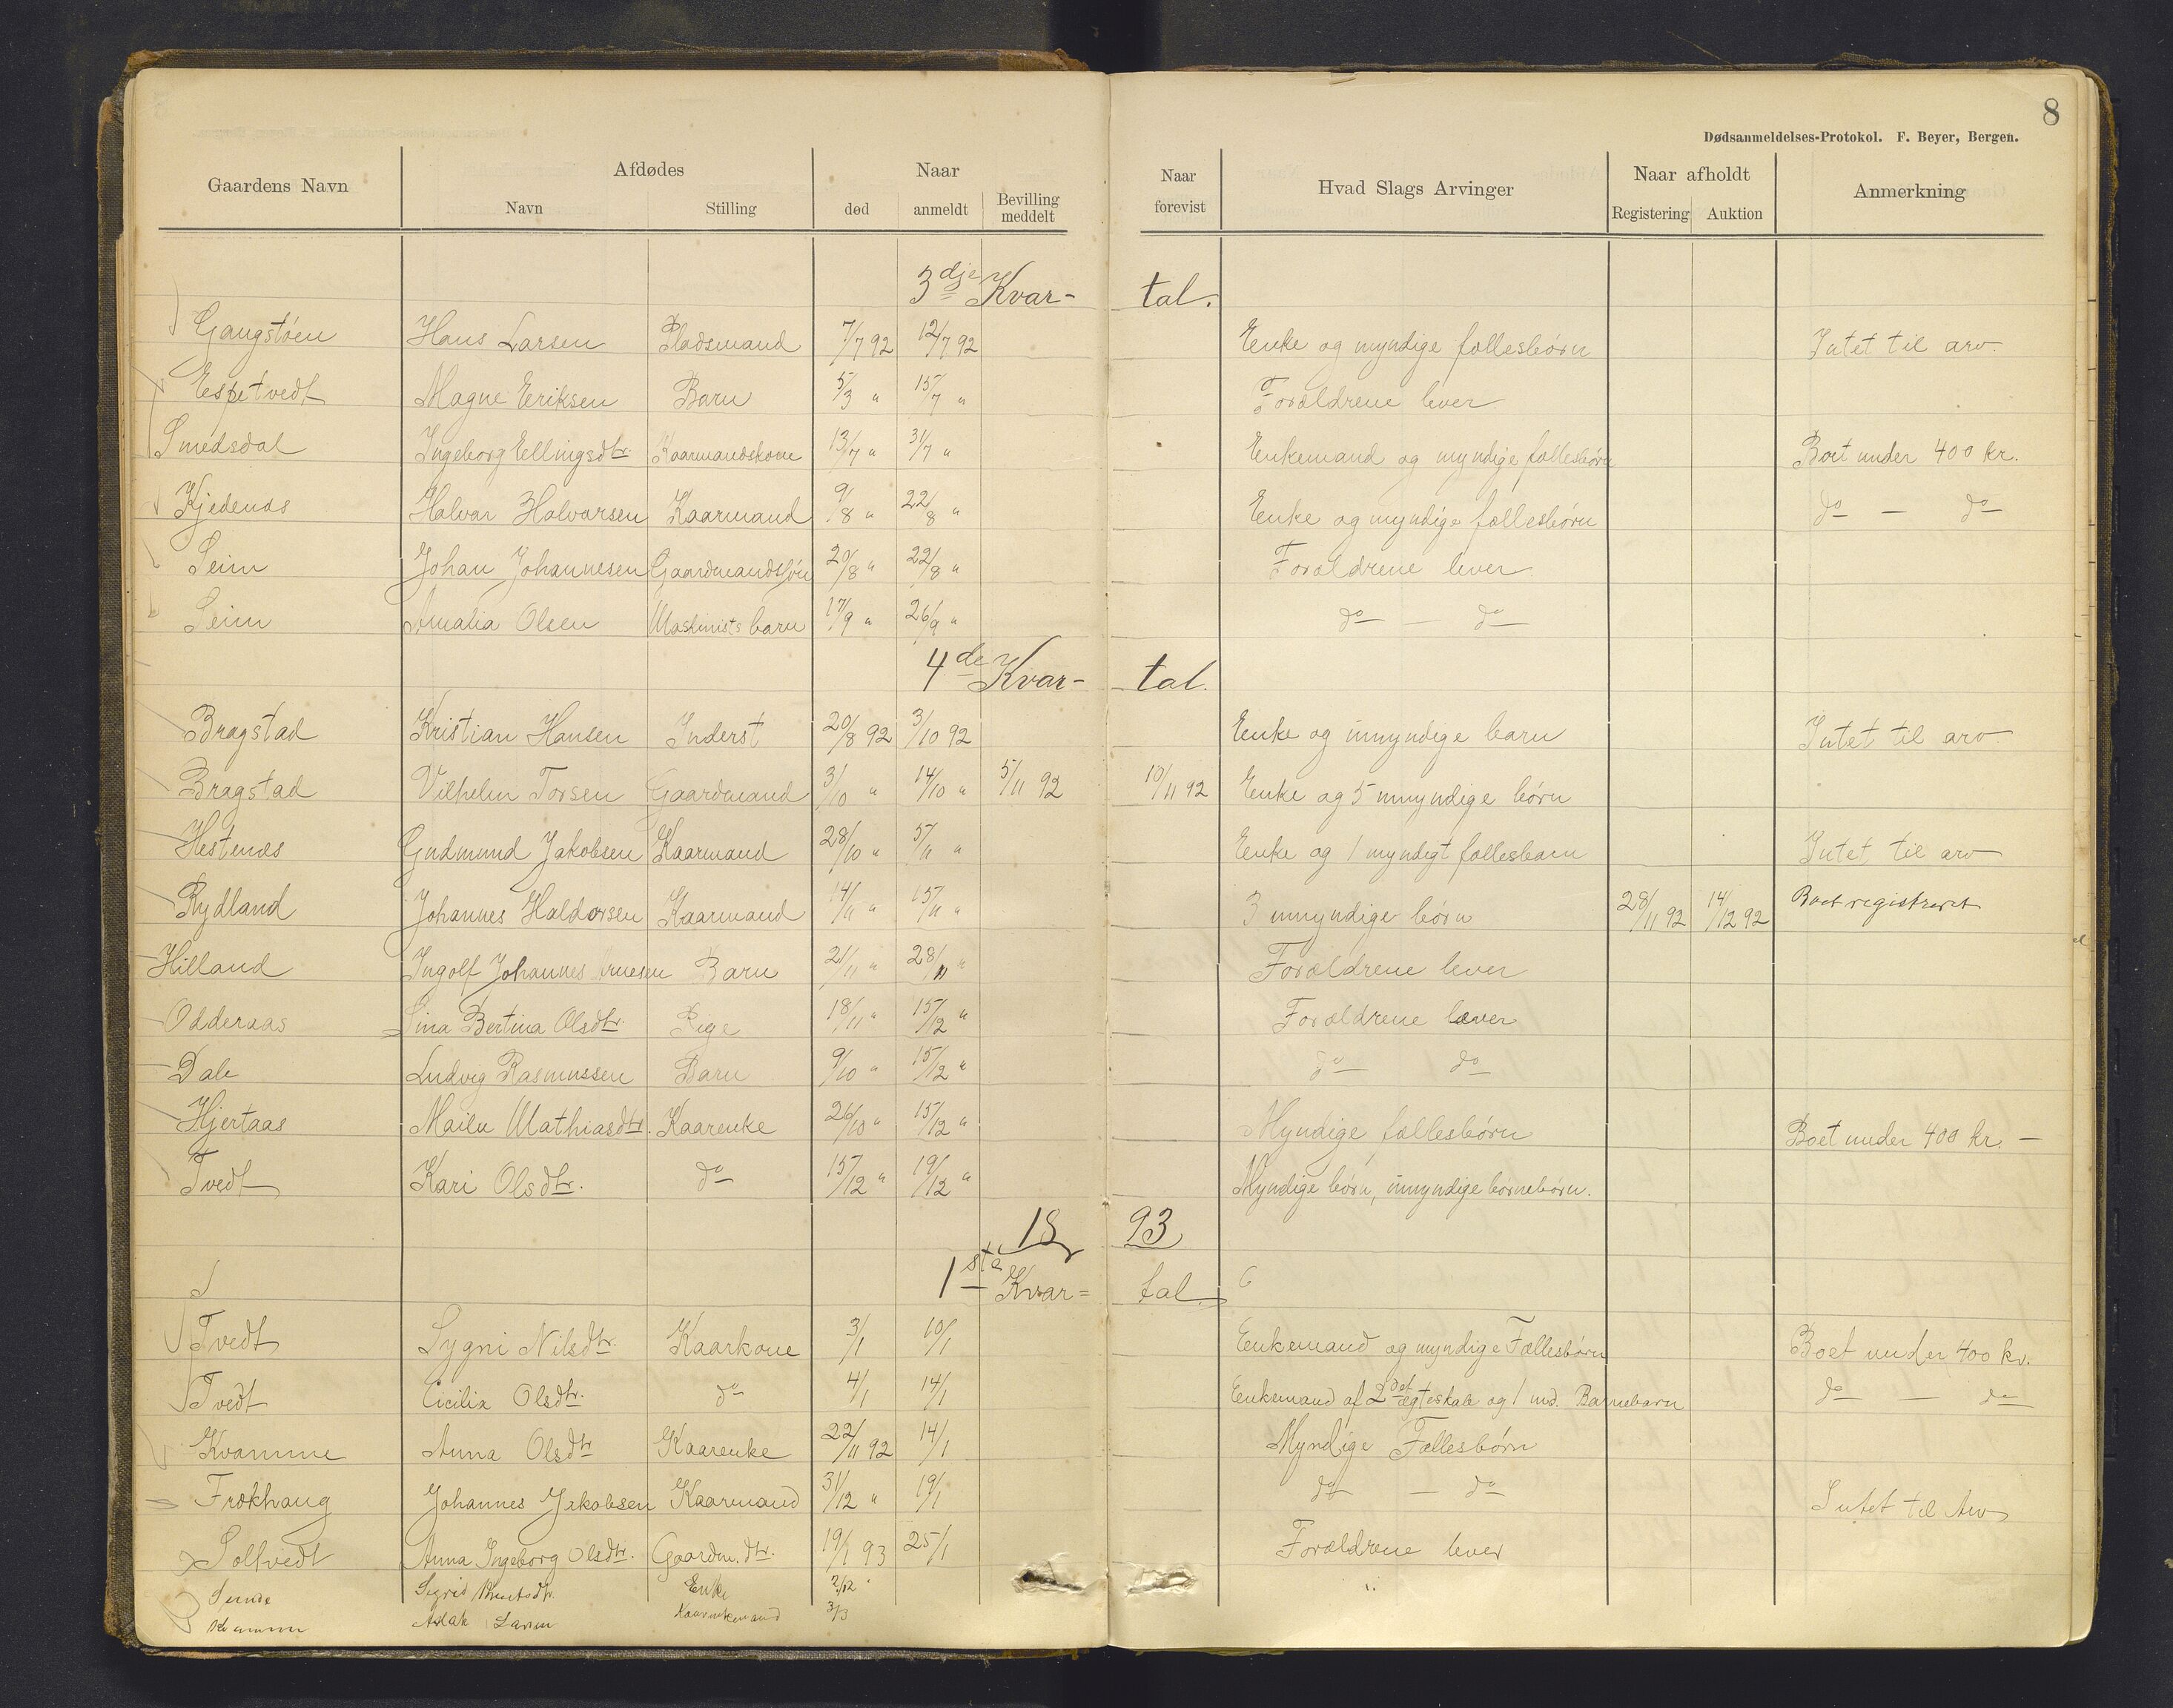 8
Dødsanmeldelses-Protokol. F. Beyer, Bergen.
Gaardens Navn Afdødes Naar Naar Hvad Slags Arvinger Naar afholdt Anmerkning
Navn Stilling død anmeldt Bevilling meddelt forevist Registering Auktion
3dje Kvar- tal.
Gangstøen Hans Larsen Pladsmand 7/7 92 12/7 92 Enke og myndige fællesbørn Intet til arv.
Espetvedt Magne Eriksen Barn 5/3 " 15/7 " Forældrene lever
Smedsdal Ingeborg Ellingsdtr. Kaarmandskone 13/7 " 31/7 " Enkemand og myndige fællesbørn Boet under 400 kr.
Kjedenæs Halvar Halvorsen Kaarmand 9/8 " 22/8 " Enke og myndige fællesbørn do — do
Seim Johan Johannesen Gaardmandssøn 20/8 " 22/8 " Forældrene lever
Seim Amalia Olsen Maskinists barn 17/9 " 26/9 " do — do
4de Kvar- tal.
Bragstad Kristian Hansen Inderst 20/8 92 3/10 92 Enke og umyndige barn Intet til arv
Bragstad Vilhelm Torsen Gaardmand 3/10 " 14/10 " 5/11 92 10/11 92 Enke og 5 umyndige børn
Hestenæs Gudmund Jakobsen Kaarmand 28/10 " 5/11 " Enke og 1 myndigt fællesbarn Intet til arv
Rydland Johannes Haldorsen Kaarmand 14/11 " 15/11 " 3 umyndige børn 28/11 92 14/12 92 Boet registreret
Hilland Ingolf Johannes Arnesen Barn 21/11 " 28/11 " Forældrene lever
Odderaas Sina Bertina Olsdtr. Pige 18/11 " 15/12 " Forældrene læver
Dale Ludvig Rasmussen Barn 9/10 " 15/12 " do do
Hjertaas Mailu Mathiasdtr. Kaarenke 26/10 " 15/12 " Myndige fællesbørn Boet under 400 kr. —
Tvedt Kari Olsdtr. do 15/12 " 19/12 " Myndige børn, umyndige børnebørn.
18 93
1ste Kvar= tal.
Tvedt Sygni Nilsdtr. Kaarkone 3/1 10/1 Enkemand og myndige Fællesbørn Boet under 400 kr.
Tvedt Cicilia Olsdtr. do 4/1 14/1 Enkemand af 2det ægteskab og 1 md. Barnebarn do — do
Kvamme Anna Olsdtr Kaarenke 22/11 92 14/1 Myndige Fællesbørn
Frøkhaug Johannes Jakobsen Kaarmand 31/12 " 19/1 do — do Intet til Arv
Soltvedt Anna Ingeborg Olsdtr. Gaardm. dtr. 19/1 93 25/1 Forældrene lever
Sunde Sigrid Enke 2/12 "
Kvamme Aslak Larsen Kaarenkemand 3/3